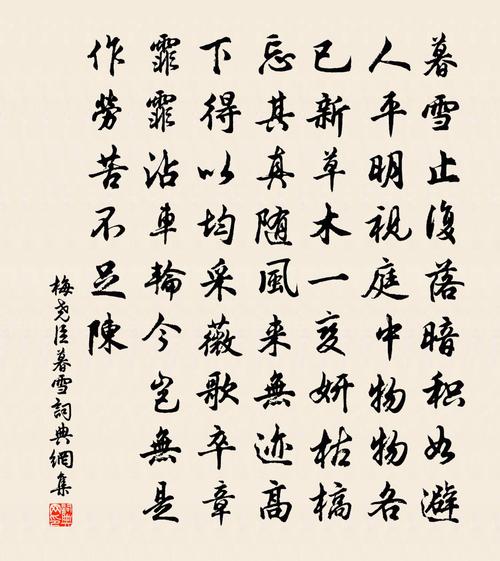 暮雪止復落暗积如避
人平明視庭中物物各
已新草木一变妍枯槁
忘其真随風来無迹高
下得以均采薇歌卒章
霏霏沾車輪今岂無是
作勞苦不足陳
梅尧臣暮雪詞典網集